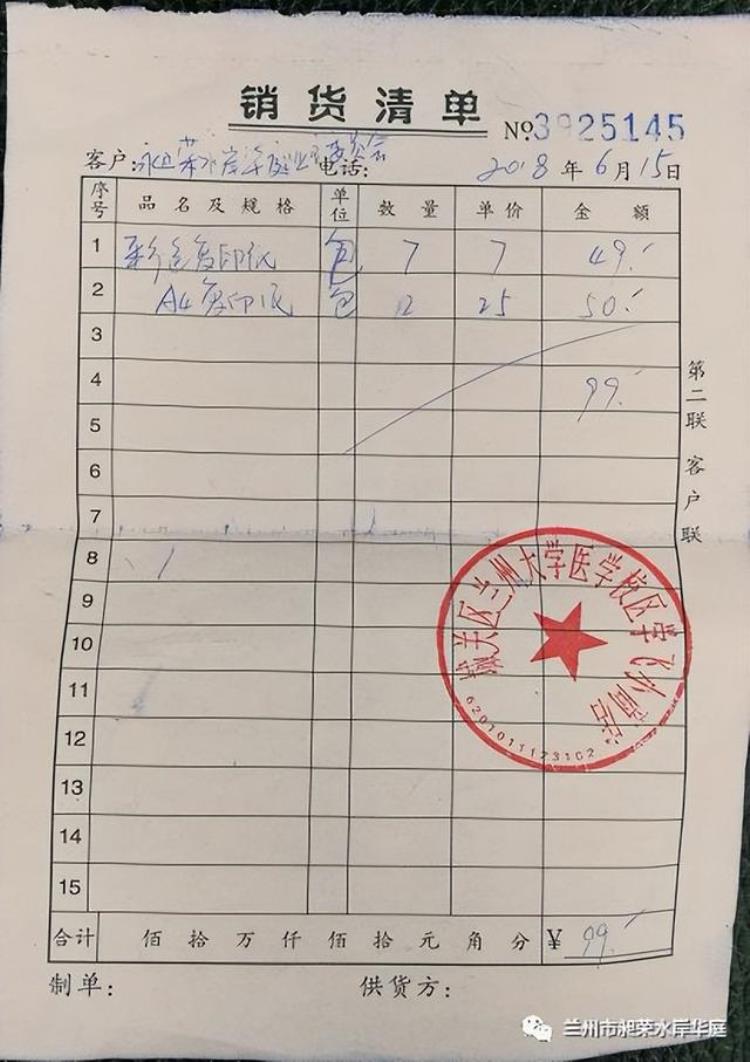 销货清单
№3925145
客户: 水岸华庭业主委员会 电话: 2018年6月15日
序号 品名及规格 单位 数量 单价 金额
1 彩色复印纸 包 7 7 49.-
2 A4复印纸 包 2 25 50.-
3
4 99.-
5
6
7
8
9
10
11
12
13
14
15
合计 佰拾万仟佰拾元角分 ¥ 99.-
制单: 供货方:
第二联 客户联
城关区兰州大学医学校区学飞小商店
6201011173102
兰州市昶荣水岸华庭